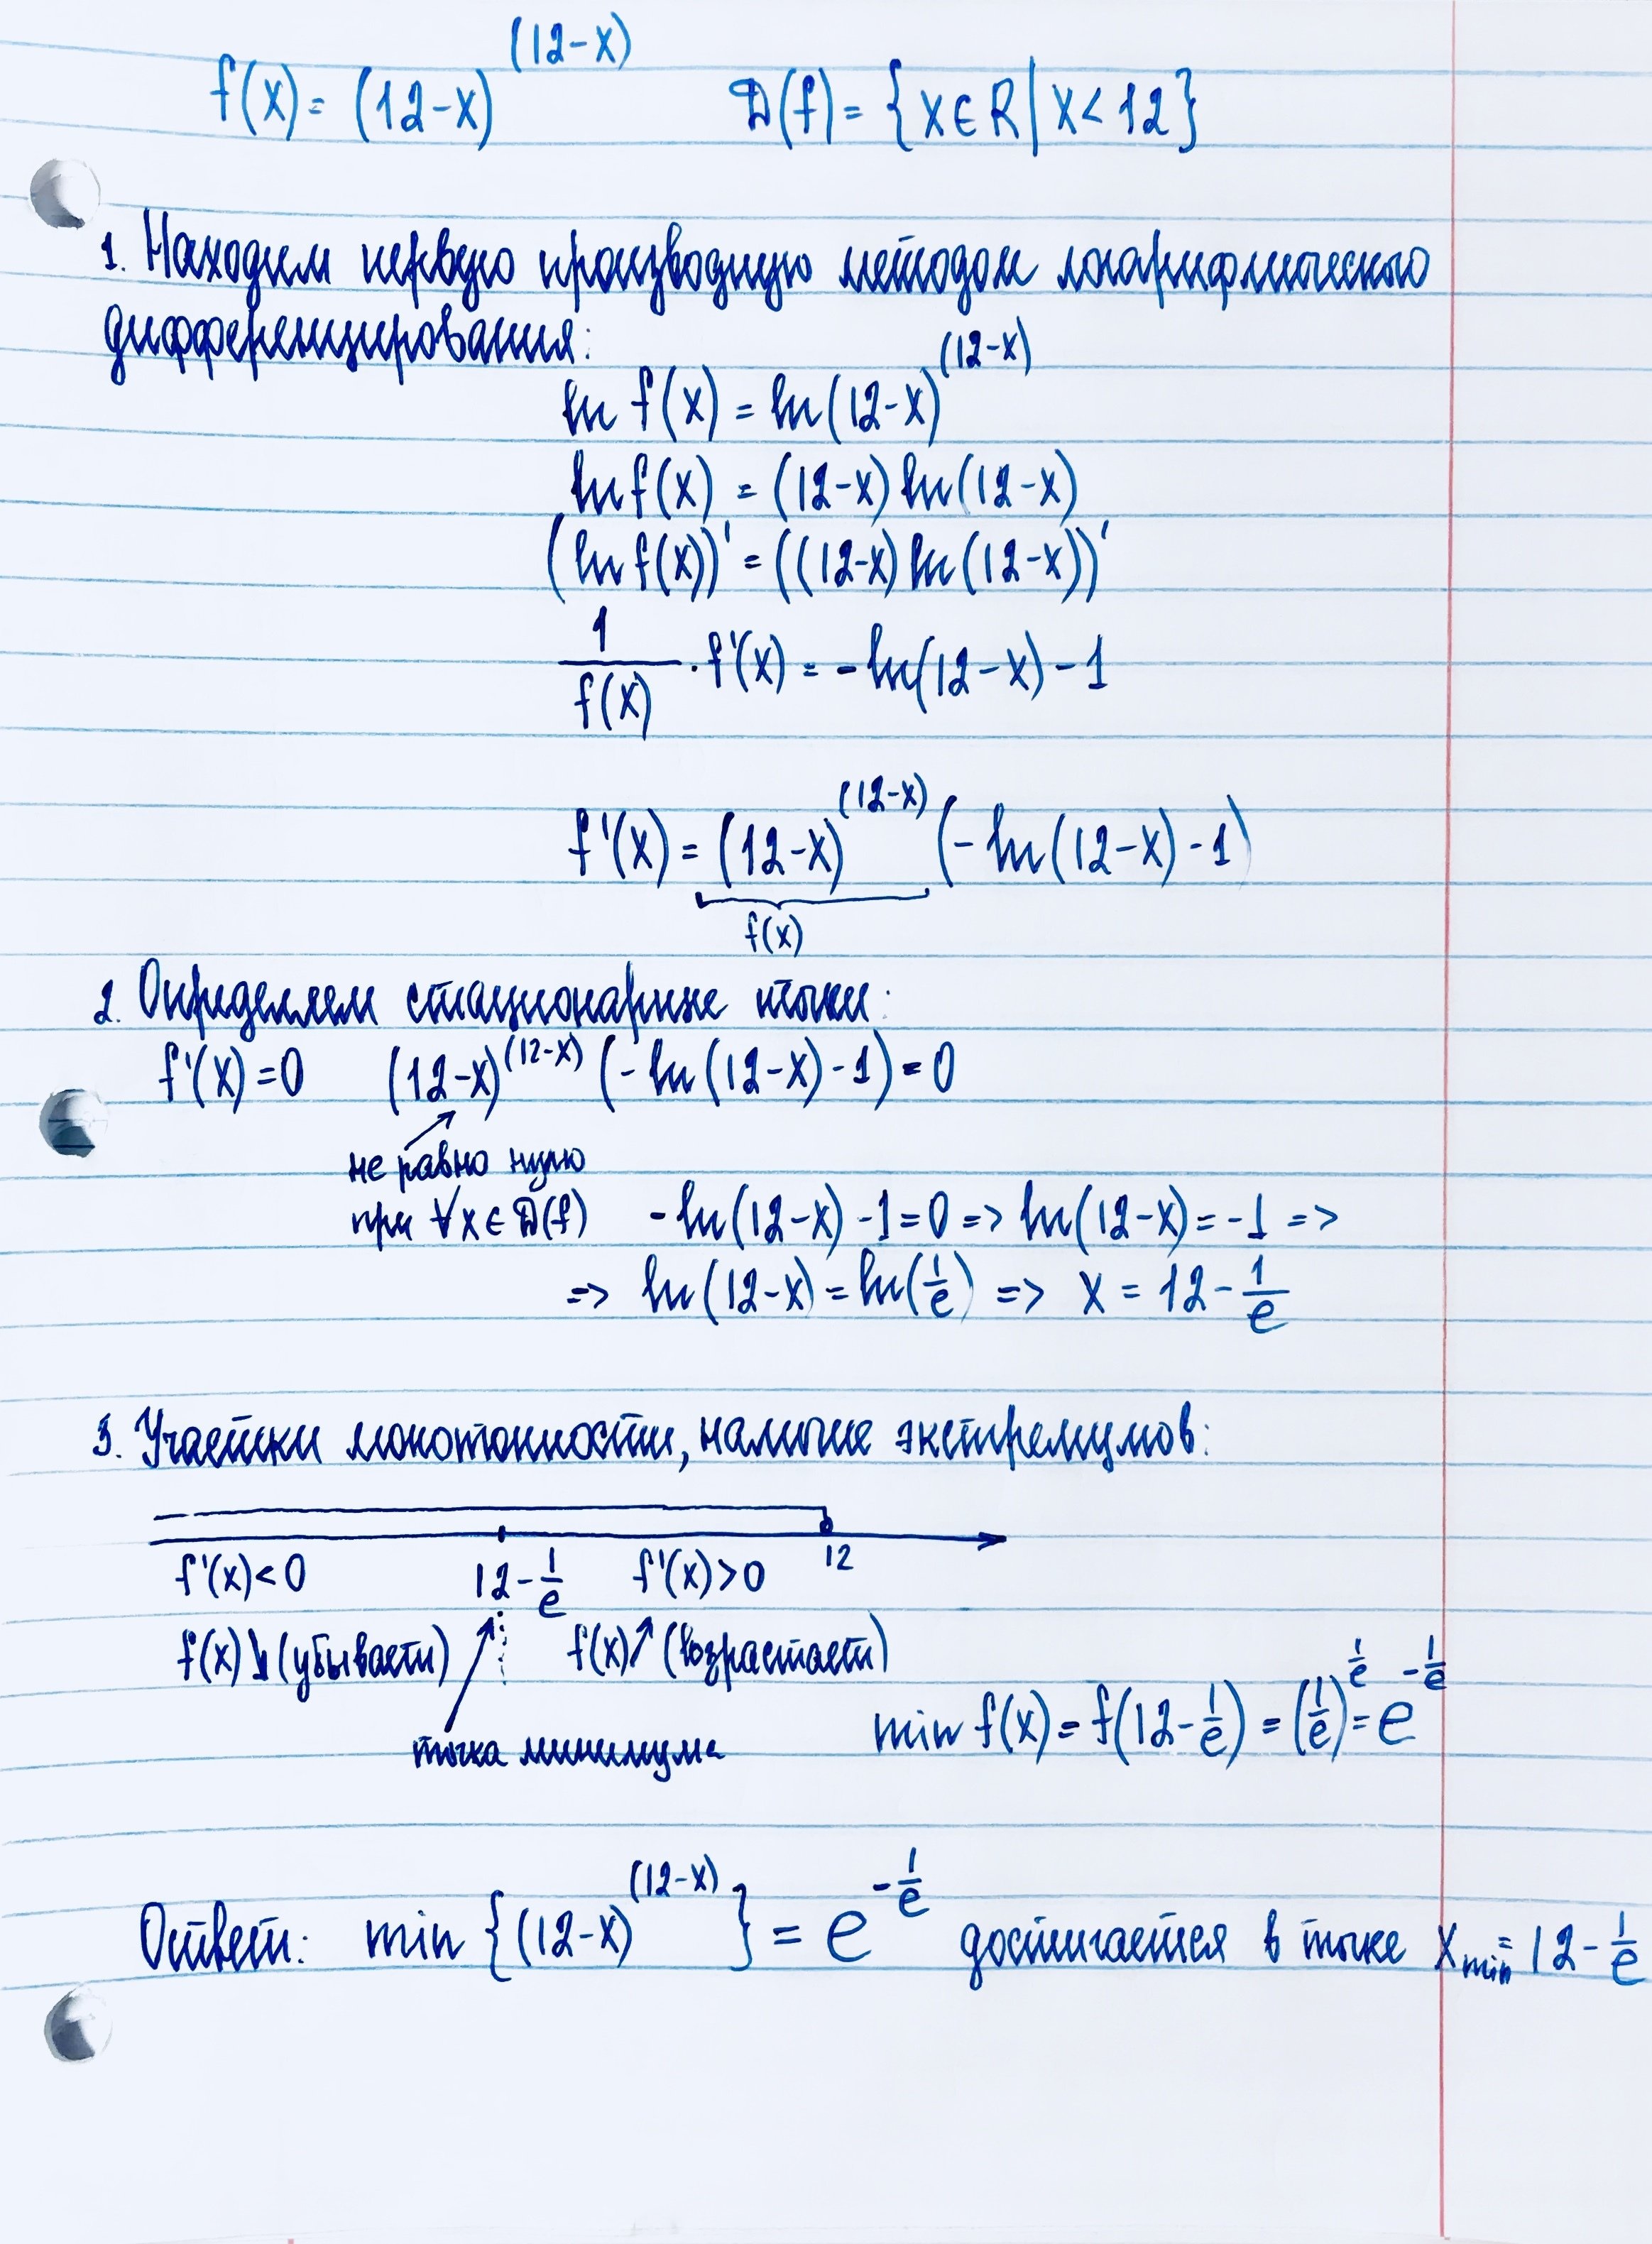 f(x) = (12-x)^(12-x) D(f) = {x∈R | x<12}
1. Находим первую производную методом логарифмического
дифференцирования:
ln f(x) = ln(12-x)^(12-x)
ln f(x) = (12-x) ln(12-x)
(ln f(x))' = ((12-x) ln(12-x))'
1/f(x) · f'(x) = -ln(12-x) - 1
f'(x) = (12-x)^(12-x) (-ln(12-x) - 1)
f(x)
2. Определяем стационарные точки:
f'(x)=0 (12-x)^(12-x) (-ln(12-x)-1) = 0
не равно нулю
при ∀x∈D(f) -ln(12-x) -1=0 => ln(12-x) = -1 =>
=> ln(12-x) = ln(1/e) => x = 12 - 1/e
3. Участки монотонности, наличие экстремумов:
f'(x)<0 12 - 1/e f'(x)>0 12
f(x)↘(убывает) f(x)↗(возрастает)
точка минимума min f(x) = f(12 - 1/e) = (1/e)^(1/e) = e^(-1/e)
Ответ: min {(12-x)^(12-x)} = e^(-1/e) достигается в точке x_min = 12 - 1/e